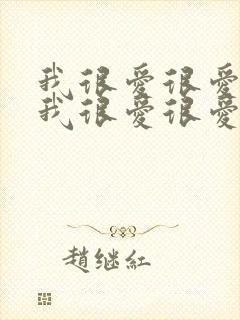 我很爱很爱
我很爱很爱
趙继红